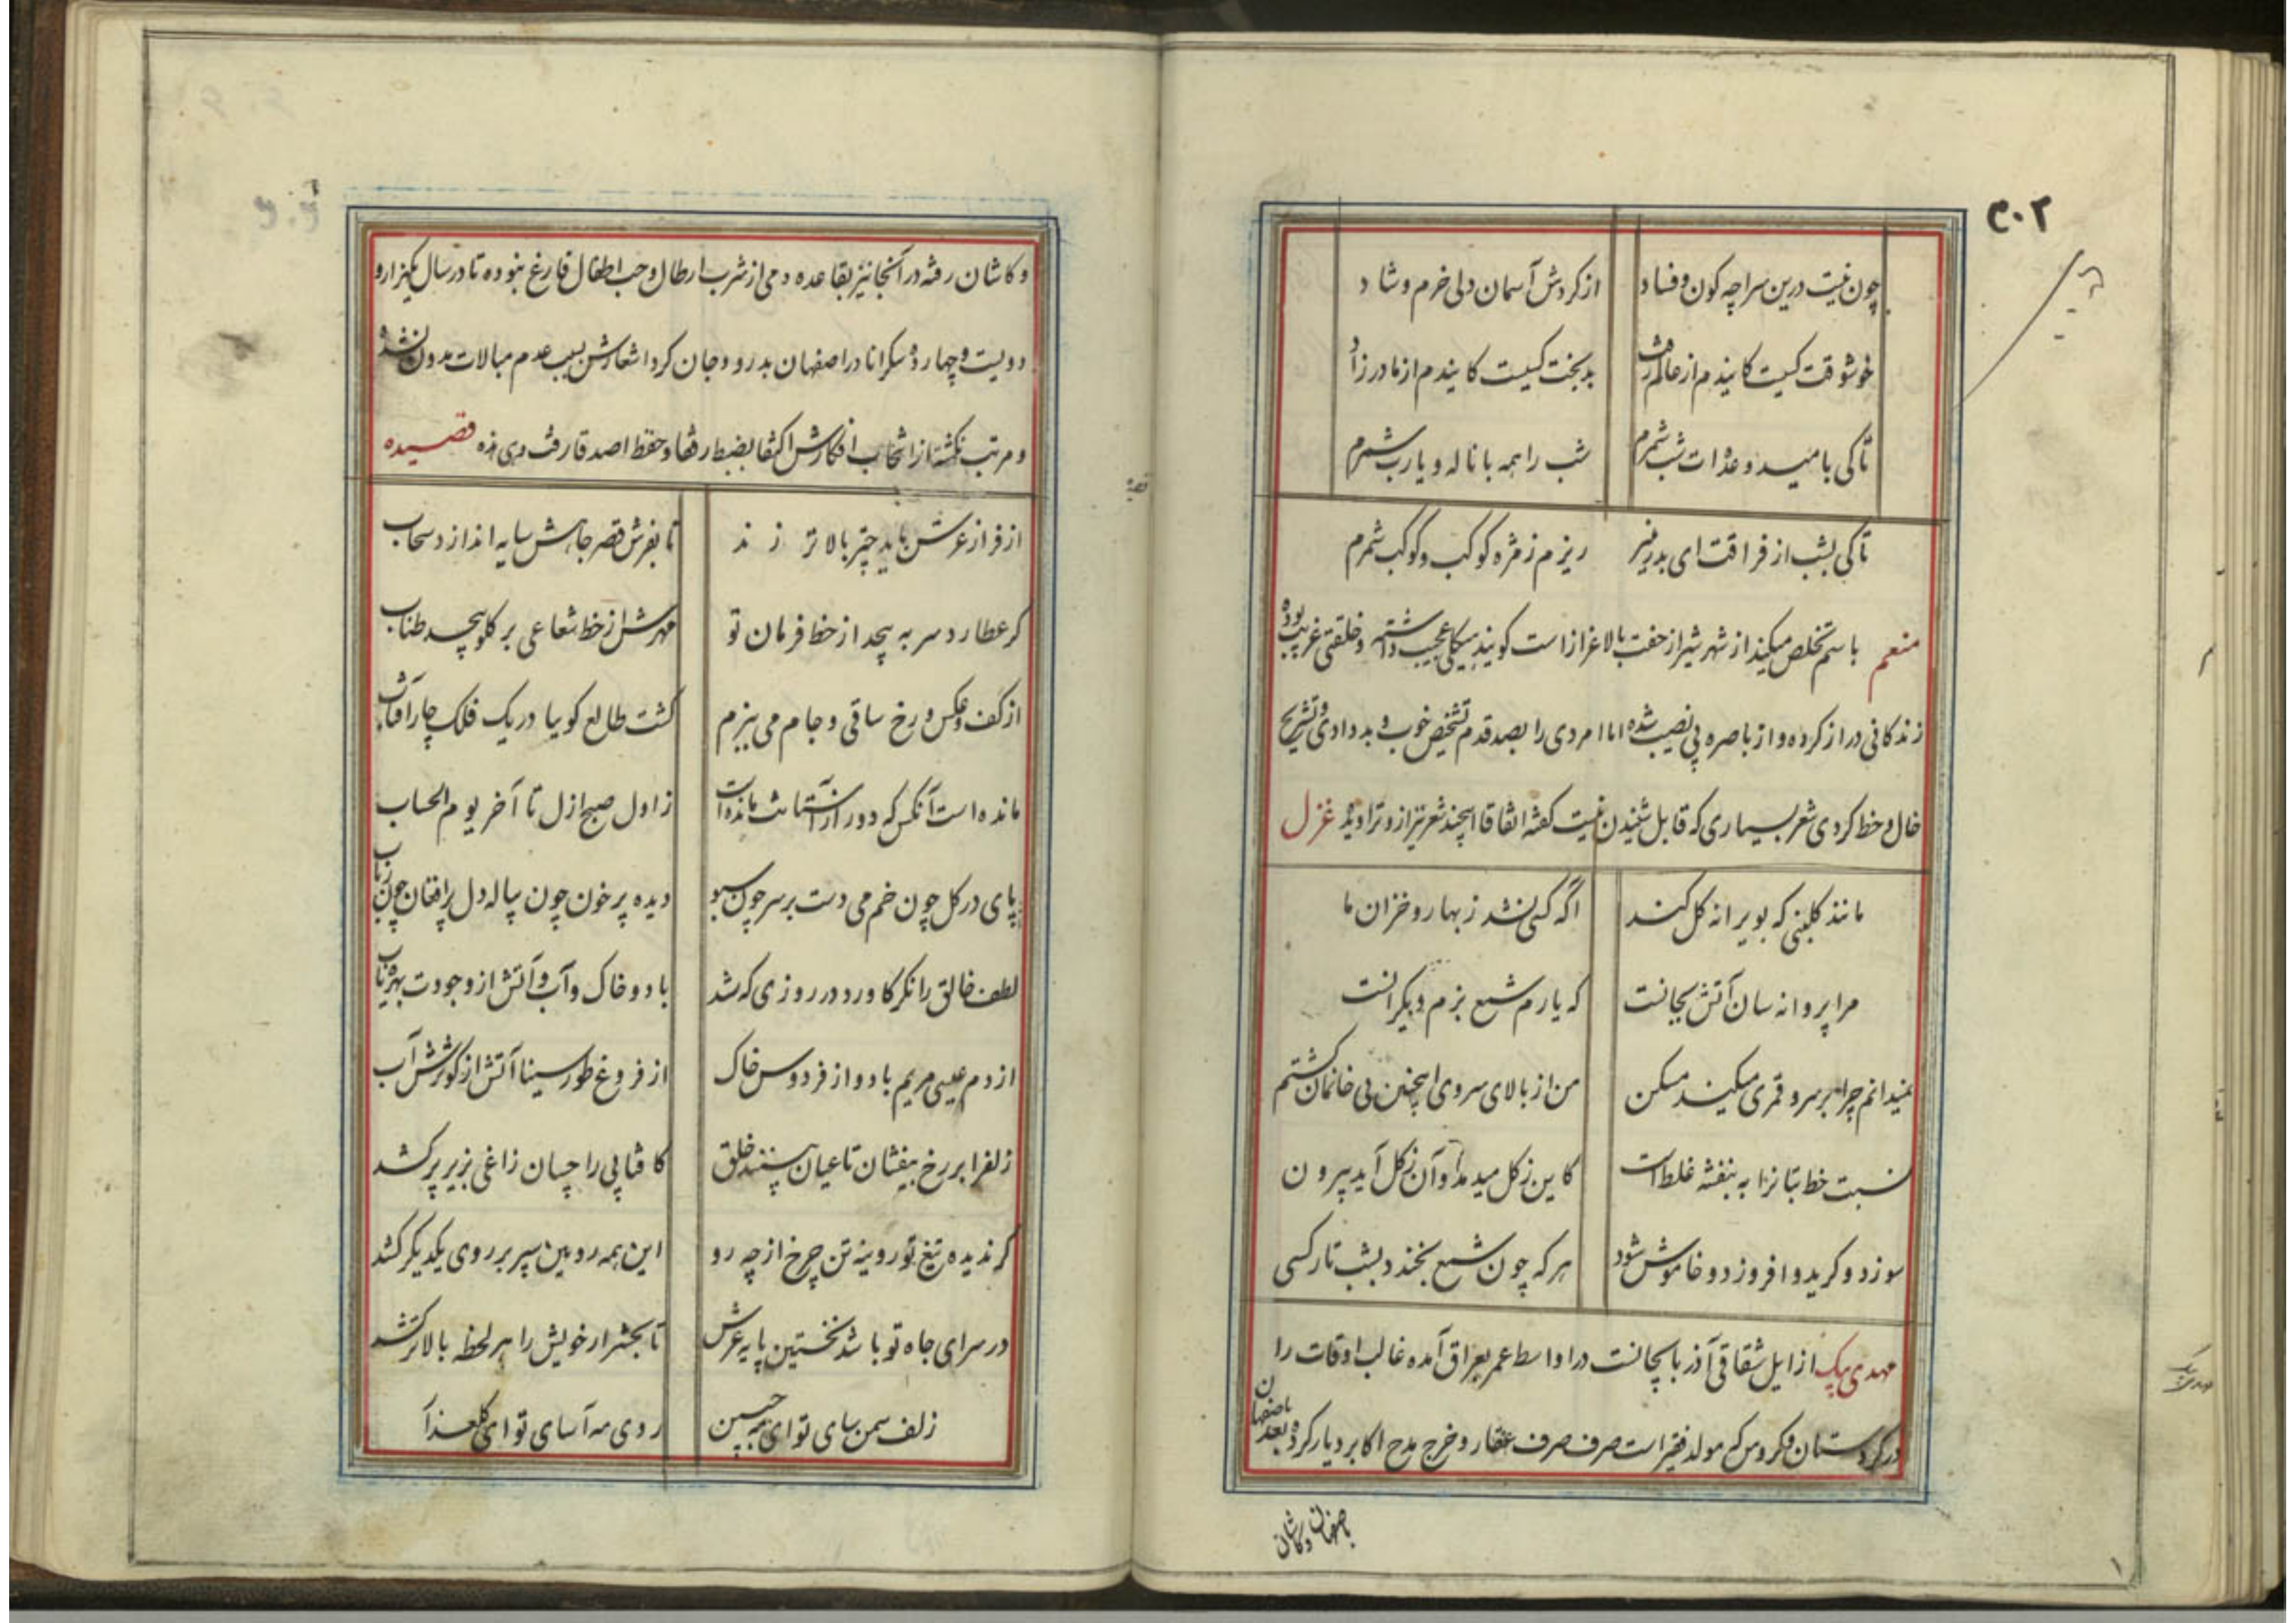 ۳۰۲
چون نیست درین سراچه کون و فساد از کردش آسمان دلی خرم و شاد
خوشوقت کسیست کاینده م از عالم رفت بدبخت کسیست کاینده م از مادر زاد
تا کی بامید وعده ات شب شمرم شب را همه با ناله و یارب شمرم
تا کی بشب از فراقت ای بدر منیر ریزم ز مژه کوکب و کوکب شمرم
منعم باسم تخلص میکند از شهر شیراز جنت بالاغراز است کویند هیکلی عجیب داشته و خلقتی غریب بوده
زندکانی دراز کرده و از باصره بی نصیب شده اما امردی را بصد قدم تشخیص خوب و بد دادی و تشریح
خال و خط کردی شعر بسیاری که قابل شنیدن نیست کفته اتفاقا اینچند شعر نیز ازو تراویده غزل
مانند کلبنی که بویرانه کل کند اگه کسی نشد ز بهار و خزان ما
مرا پروانه سان آتش بجانست که یارم شمع بزم دیکرانست
نمیدانم چرا بر سرو قمری میکند مسکن من از بالای سروی اینچنین بی خانمان کشتم
نسبت خط بتانرا به بنفشه غلط است کاین ز کل میدمد و آن ز کل آید بیرون
سوزد و کرید و افروزد و خاموش شود هر که چون شمع بخندد بشب تار کسی
مهدی بیک از ایل شقاقی آذربایجانست در اواسط عمر بعراق آمده غالب اوقات را
در کردستان و کروس که مولد فقیر است صرف صرف عقار و خرج مدح اکابر دیار کرده بعد باصفهان
باصفهان و کاشان
مهدی بیک
و کاشان رفته در آنجا نیز بقاعده دمی از شرب ارطال و حب اطفال فارغ نبوده تا در سال یکهزار و
دویست و چهارده سکرانا در اصفهان بدرود جان کرد اشعارش بسبب عدم مبالات مدون نشده
و مرتب نکشته از انتخاب افکارش اکتفا بضبط رفقا و حفظ اصدقا رفت و هی هذه قصیده
از فراز عرش باید چتر بالاتر زند تا بفرش قصر جاهش سایه اندازد سحاب
کر عطارد سر به پیچد از خط فرمان تو مهرش از خط شعاعی بر کلو پیچد طناب
از کف و عکس و رخ ساقی و جام می ببزم کشت طالع کویا در یک فلک چار آفتاب
مانده است آنکس که دور از آستانت مانده است ز اول صبح ازل تا آخر یوم الحساب
پای در کل چون خم می دست بر سر چون سبو دیده پر خون چون پیاله دل پر افغان چون رباب
لطف خالق را نکر کاورد در روزی که شد باد و خاک و آب و آتش از وجودت بهره یاب
از دم عیسی مریم باد و از فردوس خاک از فروغ طور سینا آتش از کوثرش آب
زلفرا بر رخ بیفشان تا عیان بینند خلق کافتابی را چسان زاغی بزیر پر کشد
کر ندیده تیغ تو روینه تن چرخ از چه رو این همه رویین سپر بر روی یکدیکر کشد
در سرای جاه تو باشد نخستین پایه عرش تا بحشر ار خویش را هر لحظه بالاتر کشد
زلف سمن سای تو ای مه جبین روی مه آسای تو ای کلعذار